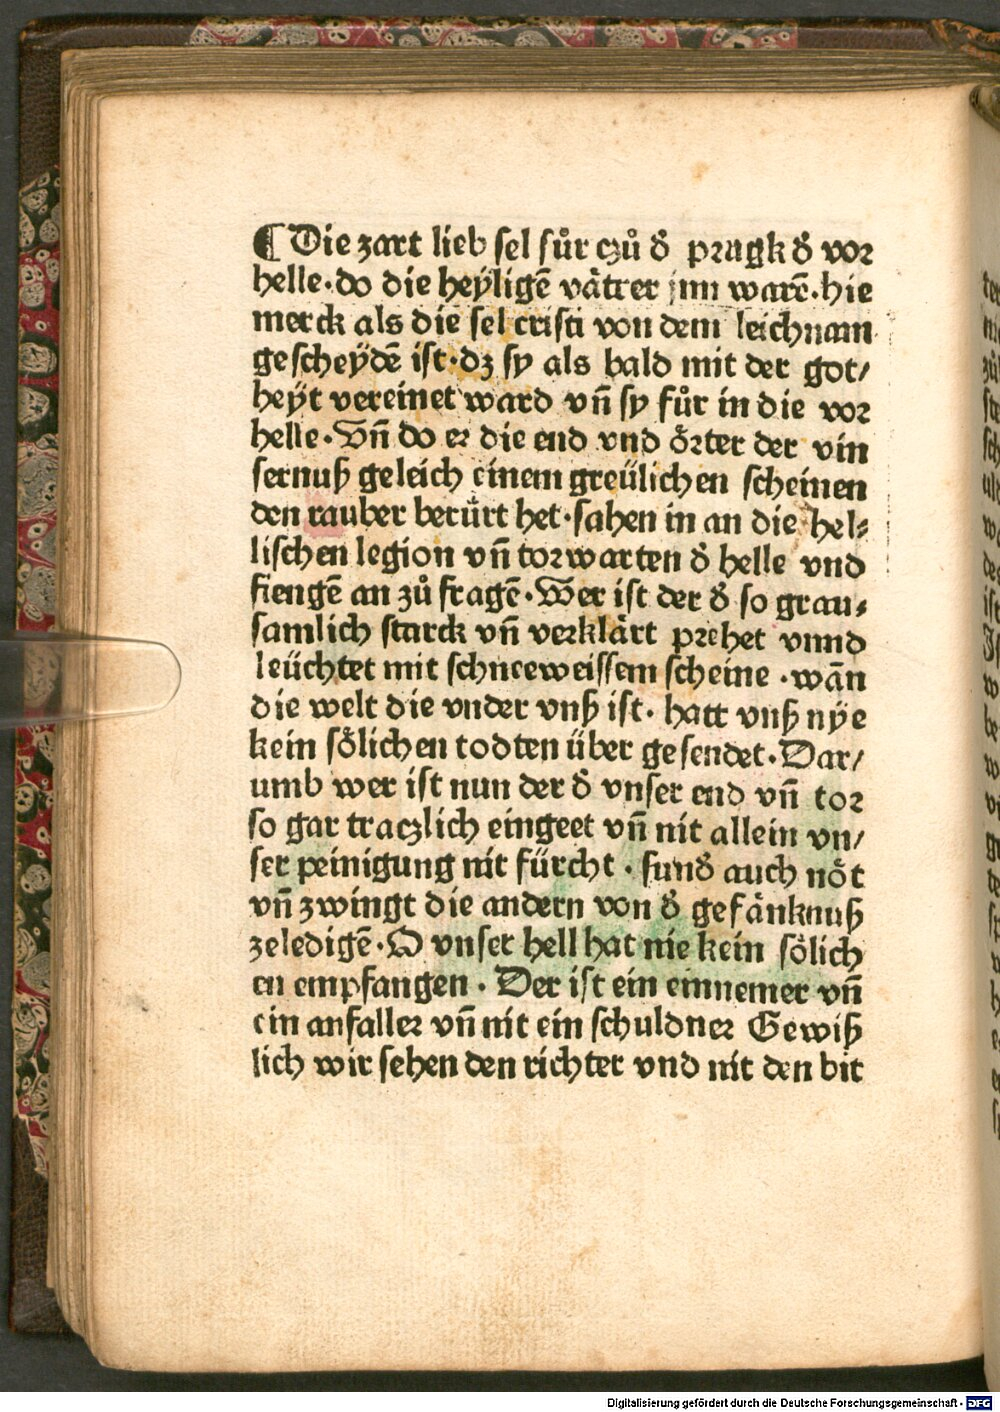 ¶ Die zart lieb sel fůr czů d̕ pragk d̕ vor
helle·do die heyligē vätter jnn warē·hie
merck als die sel cristi von dem leichnam
gescheydē ist·dz sy als bald mit der got/
heyt vereinet ward vn̄ sy fůr in die vor
helle·Vn̄ do er die end vnd örter der vin
sernuß geleich einem greülichen scheinen
den rauber berürt het·sahen in an die hel⸗
lischen legion vn̄ torwarten d̕ helle vnd
fiengē an zů fragē·Wer ist der d̕ so grau⸗
samlich starck vn̄ verklärt prehet vnnd
leüchtet mit schneeweissem scheine ·wān
die welt die vnder vnß ist· hatt vnß nye
kein sölichen todten über gesendet·Dar/
umb wer ist nun der d̕ vnser end vn̄ tor
so gar traczlich eingeet vn̄ nit allein vn/
ser peinigung nit fürcht · sund̕ auch nöt
vn̄ zwingt die andern von d̕ gefänknuß
zeledigē·O vnser hell hat nie kein sölich
en empfangen · Der ist ein einnemer vn̄
ein anfaller vn̄ nit ein schuldner Gewiß
lich wir sehen den richter vnd nit den bit
Digitalisierung gefördert durch die Deutsche Forschungsgemeinschaft - DFG